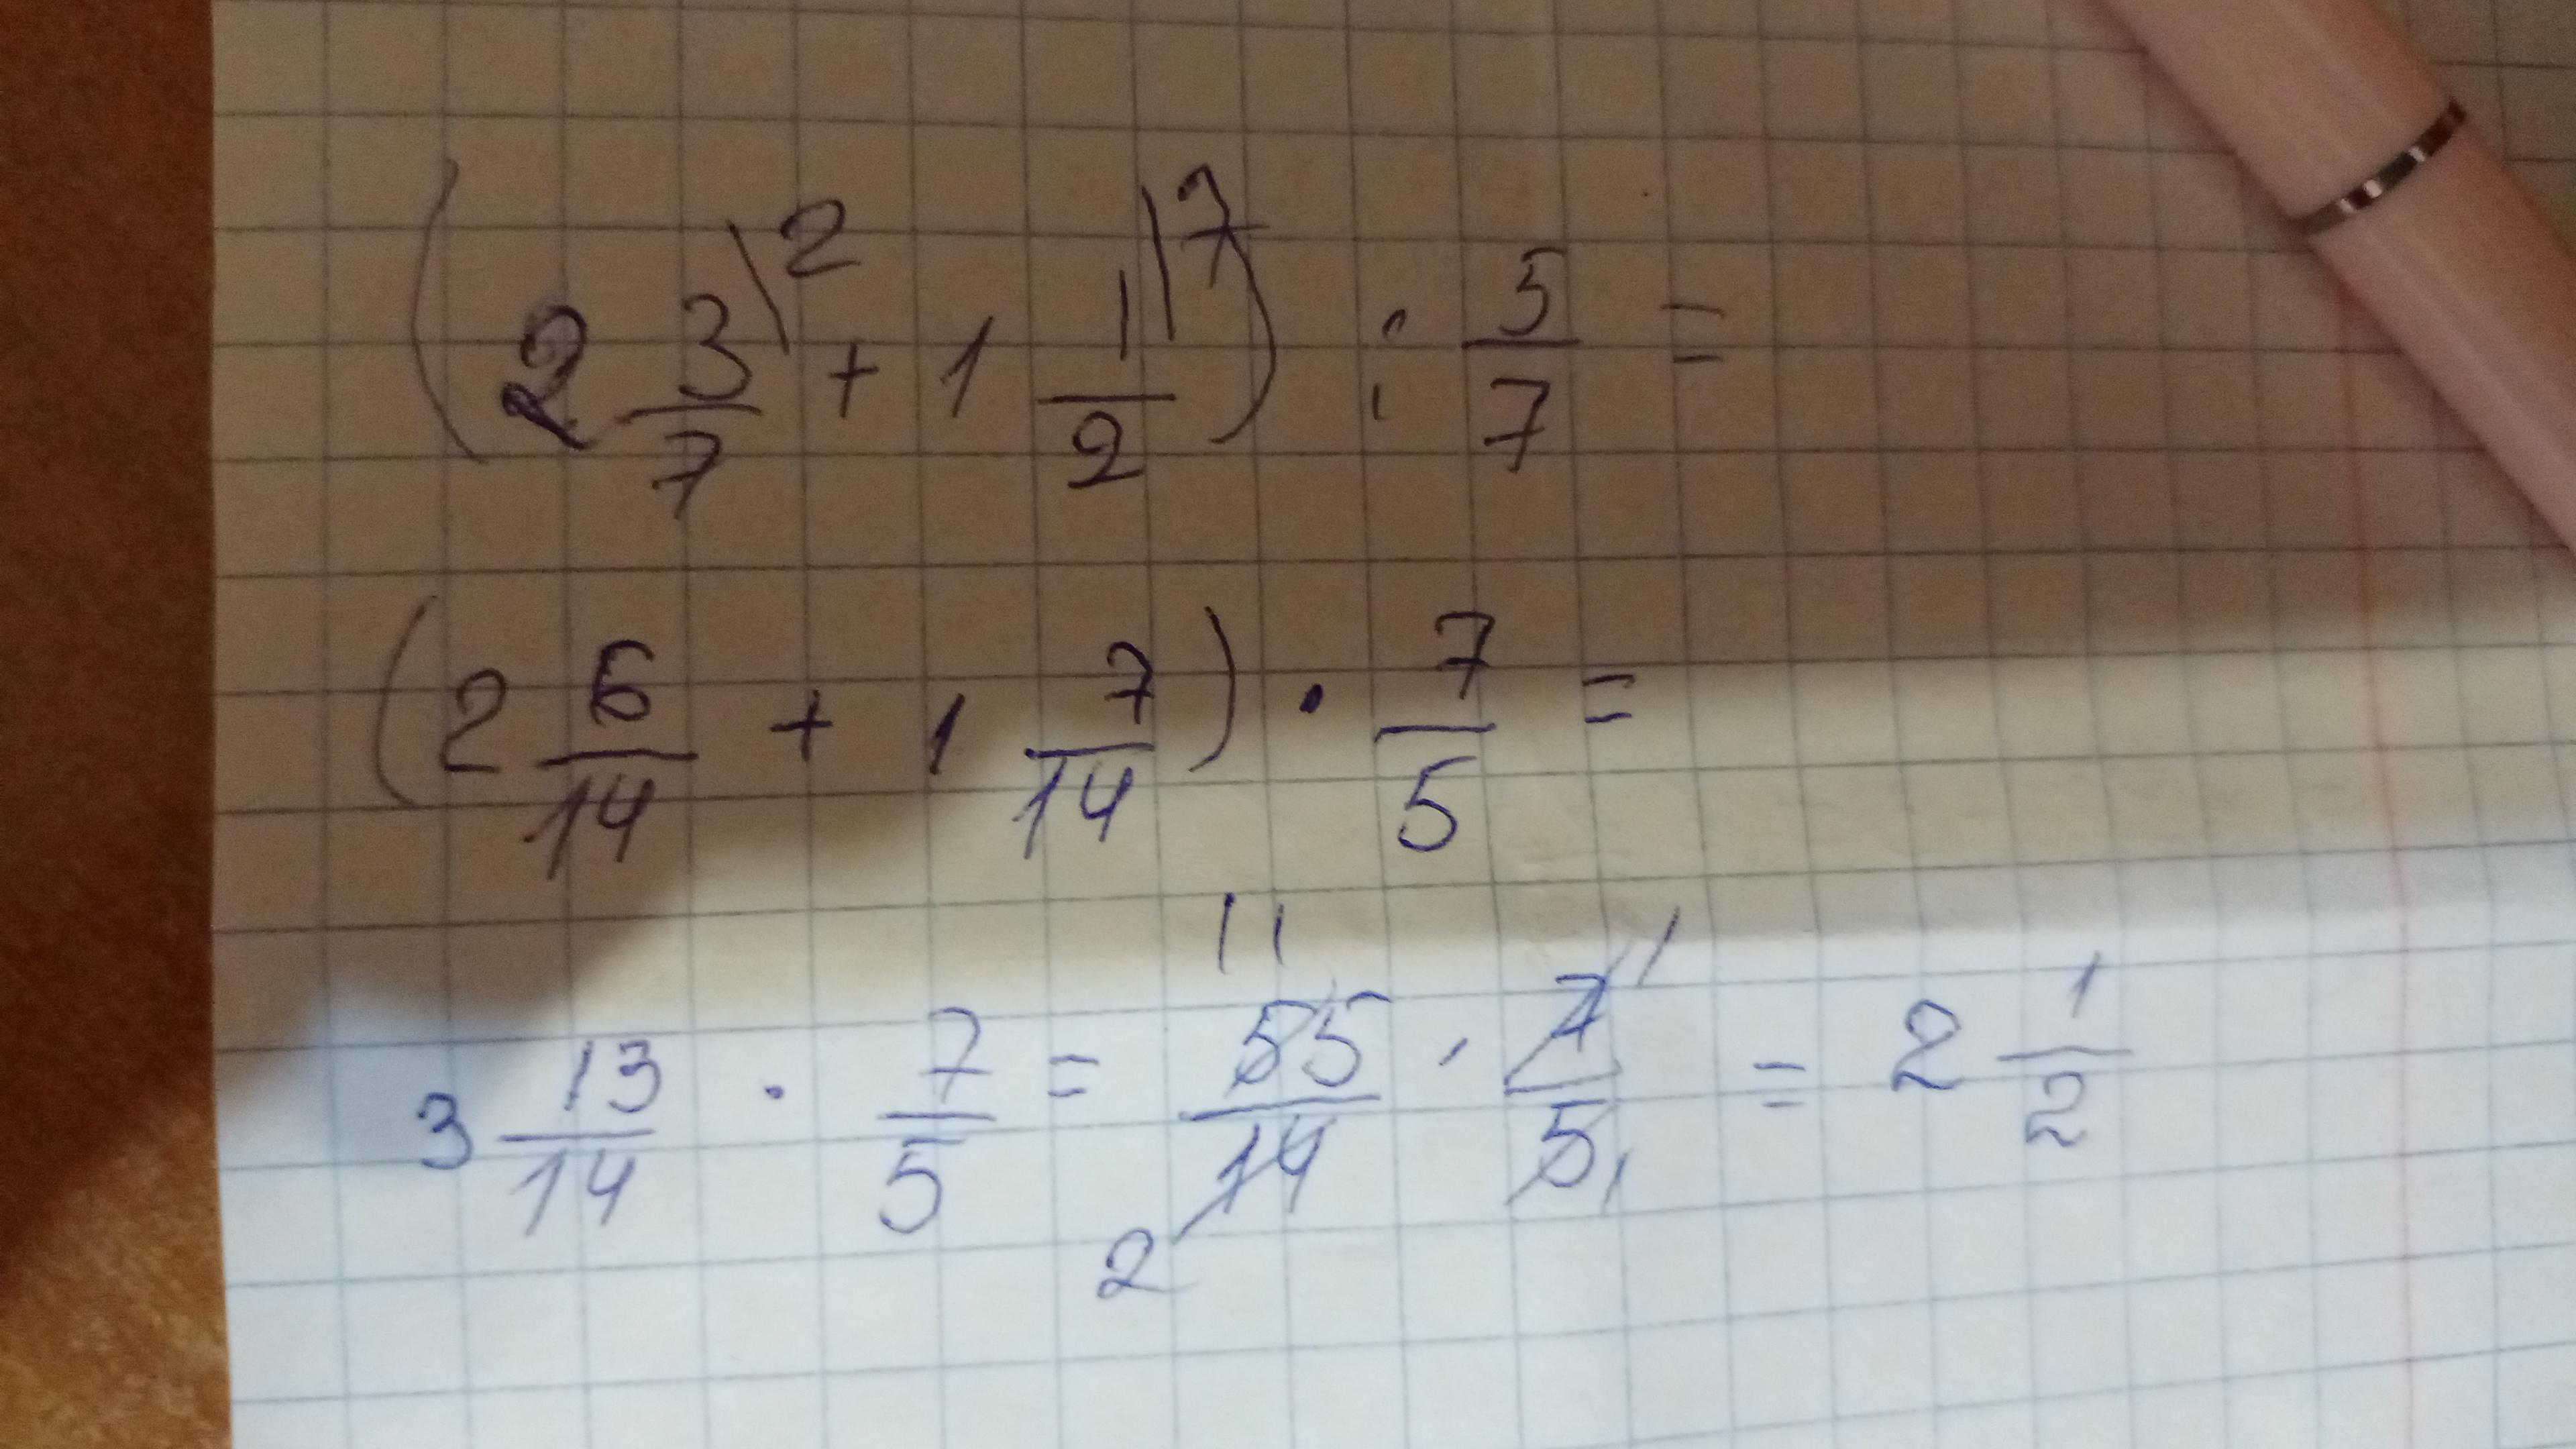 (2 3/7 \2 + 1 1/2 |7) : 5/7 =
(2 6/14 + 1 7/14) · 7/5 =
3 13/14 · 7/5 = 55/14 · 7/5 = 2 1/2
11 1
2 1